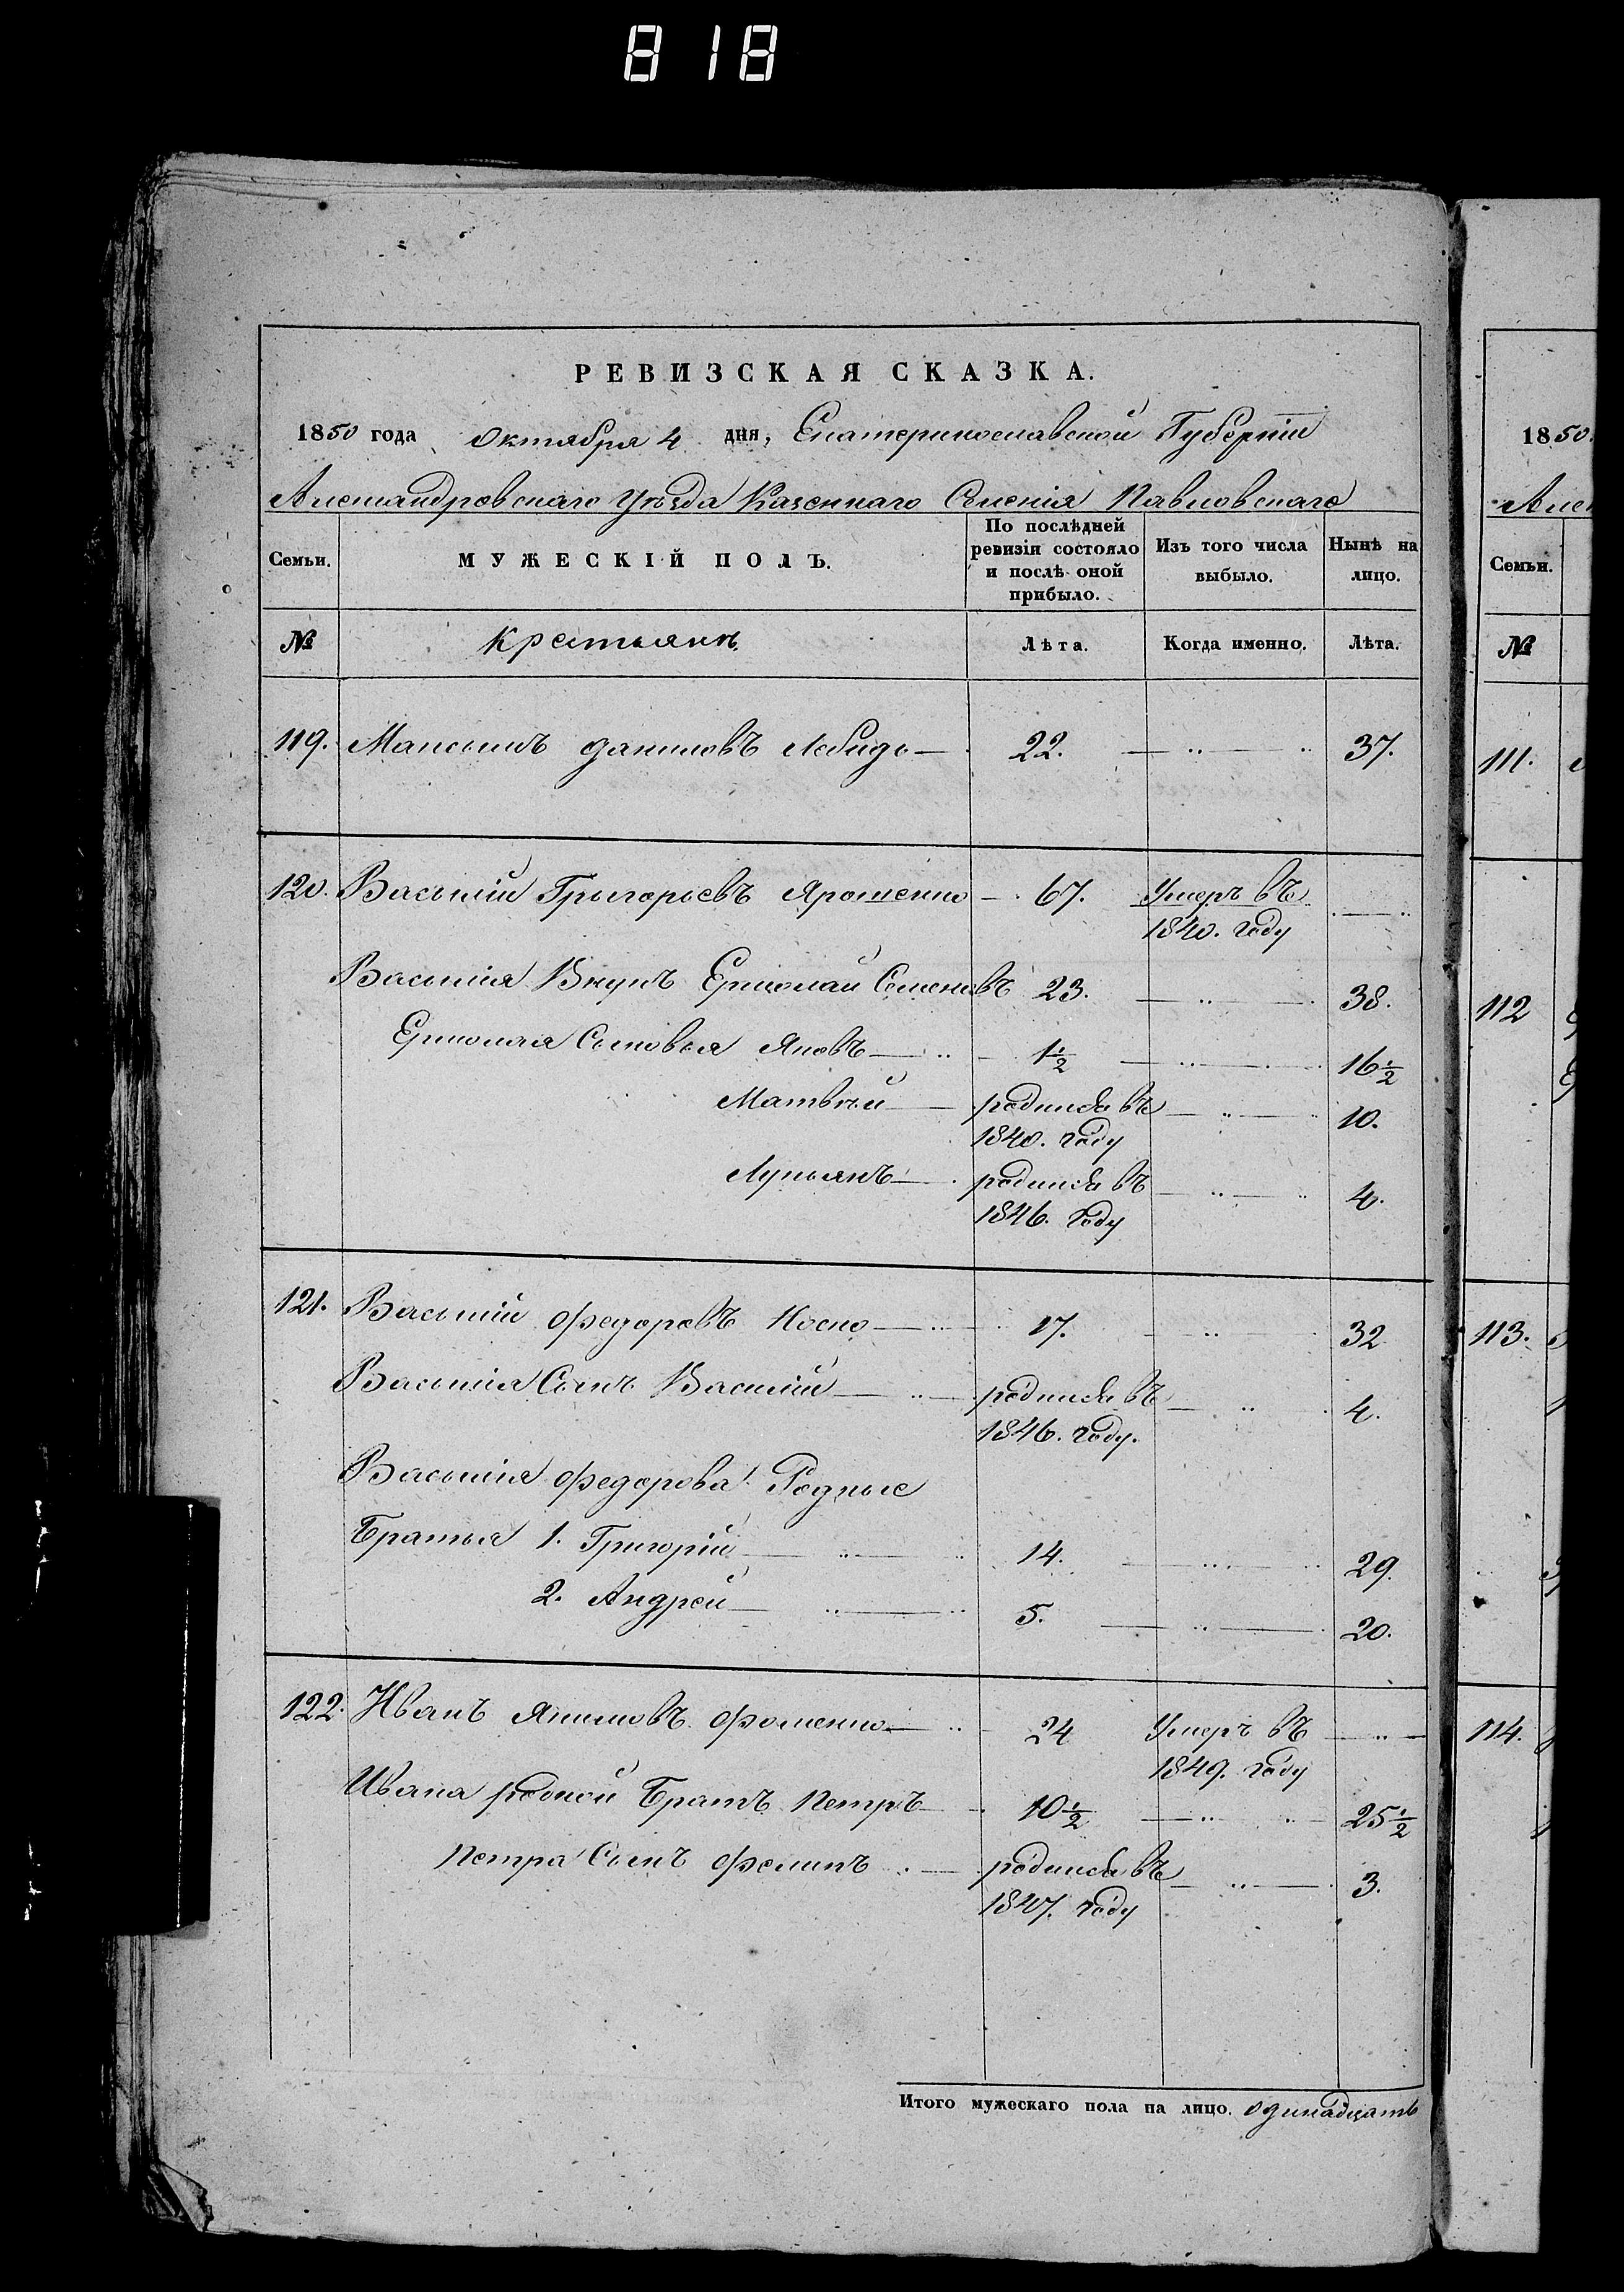 818
РЕВИЗСКАЯ СКАЗКА.
1850 года Октября 4 дня, Екатеринославской Губерніи
Александровскаго Уѣзда Казеннаго Селенія Павловскаго
Семьи. МУЖЕСКІЙ ПОЛЪ. По послѣдней ревизіи состояло и послѣ оной прибыло. Изъ того числа выбыло. Нынѣ на лицо.
№ Крестьянъ. Лѣта. Когда именно. Лѣта.
119. Максимъ Даниловъ Лебидь 22. 37.
120. Василій Григорьевъ Ярошенко 67. Умеръ въ
1840. году
Василія Внукъ Ермолай Семеновъ 23. 38.
Ермолая Сыновья Яковъ 1½ 16½
Матвѣй родился въ 10.
1840. году
Лукьянъ родился въ 4.
1846. году
121. Василій Федоровъ Носко 17. 32
Василія Сынъ Василій родился въ 4.
1846. году.
Василія Федорова Родные
Братья 1. Григорій 14. 29.
2. Андрей 5. 20.
122. Иванъ Якимовъ Фоменко 24 Умеръ въ
1849. году
Ивана родной Братъ Петръ 10½ 25½
Петра Сынъ Филипъ родился въ 3.
1847. году
Итого мужескаго пола на лицо. одинадцать
1850.
Семьи.
№
111.
112
113.
114.